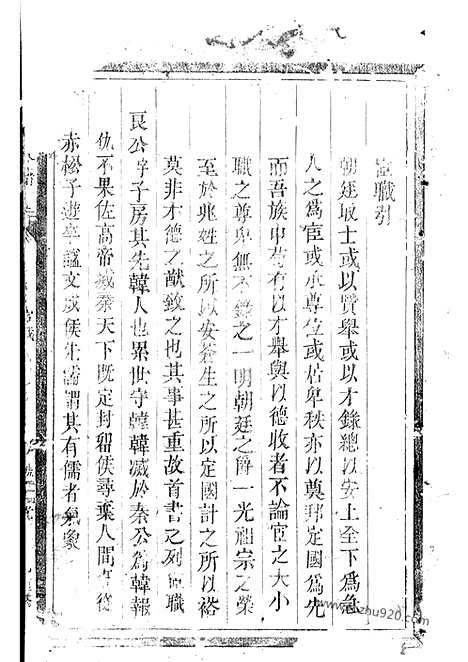 宦職引
朝廷取士或以賢舉或以才錄總以安上全下爲急
人之爲宦或承尊位或居卑秩亦以奠邦定國爲先
而吾族中苟有以才舉與以德收者不論宦之大小
職之尊卑無不錄之一明朝廷之爵一光祖宗之榮
至於兆姓之所以安蒼生之所以定國計之所以裕
莫非才德之猷致之也其事甚重故首書之列宦職
良公字子房其先韓人也累世守韓韓滅於秦公為韓報
仇不果佐高帝滅秦天下既定封留侯尋棄人間事從
赤松子遊卒謚文成侯生儒謂其有儒者氣象
zhu920.com